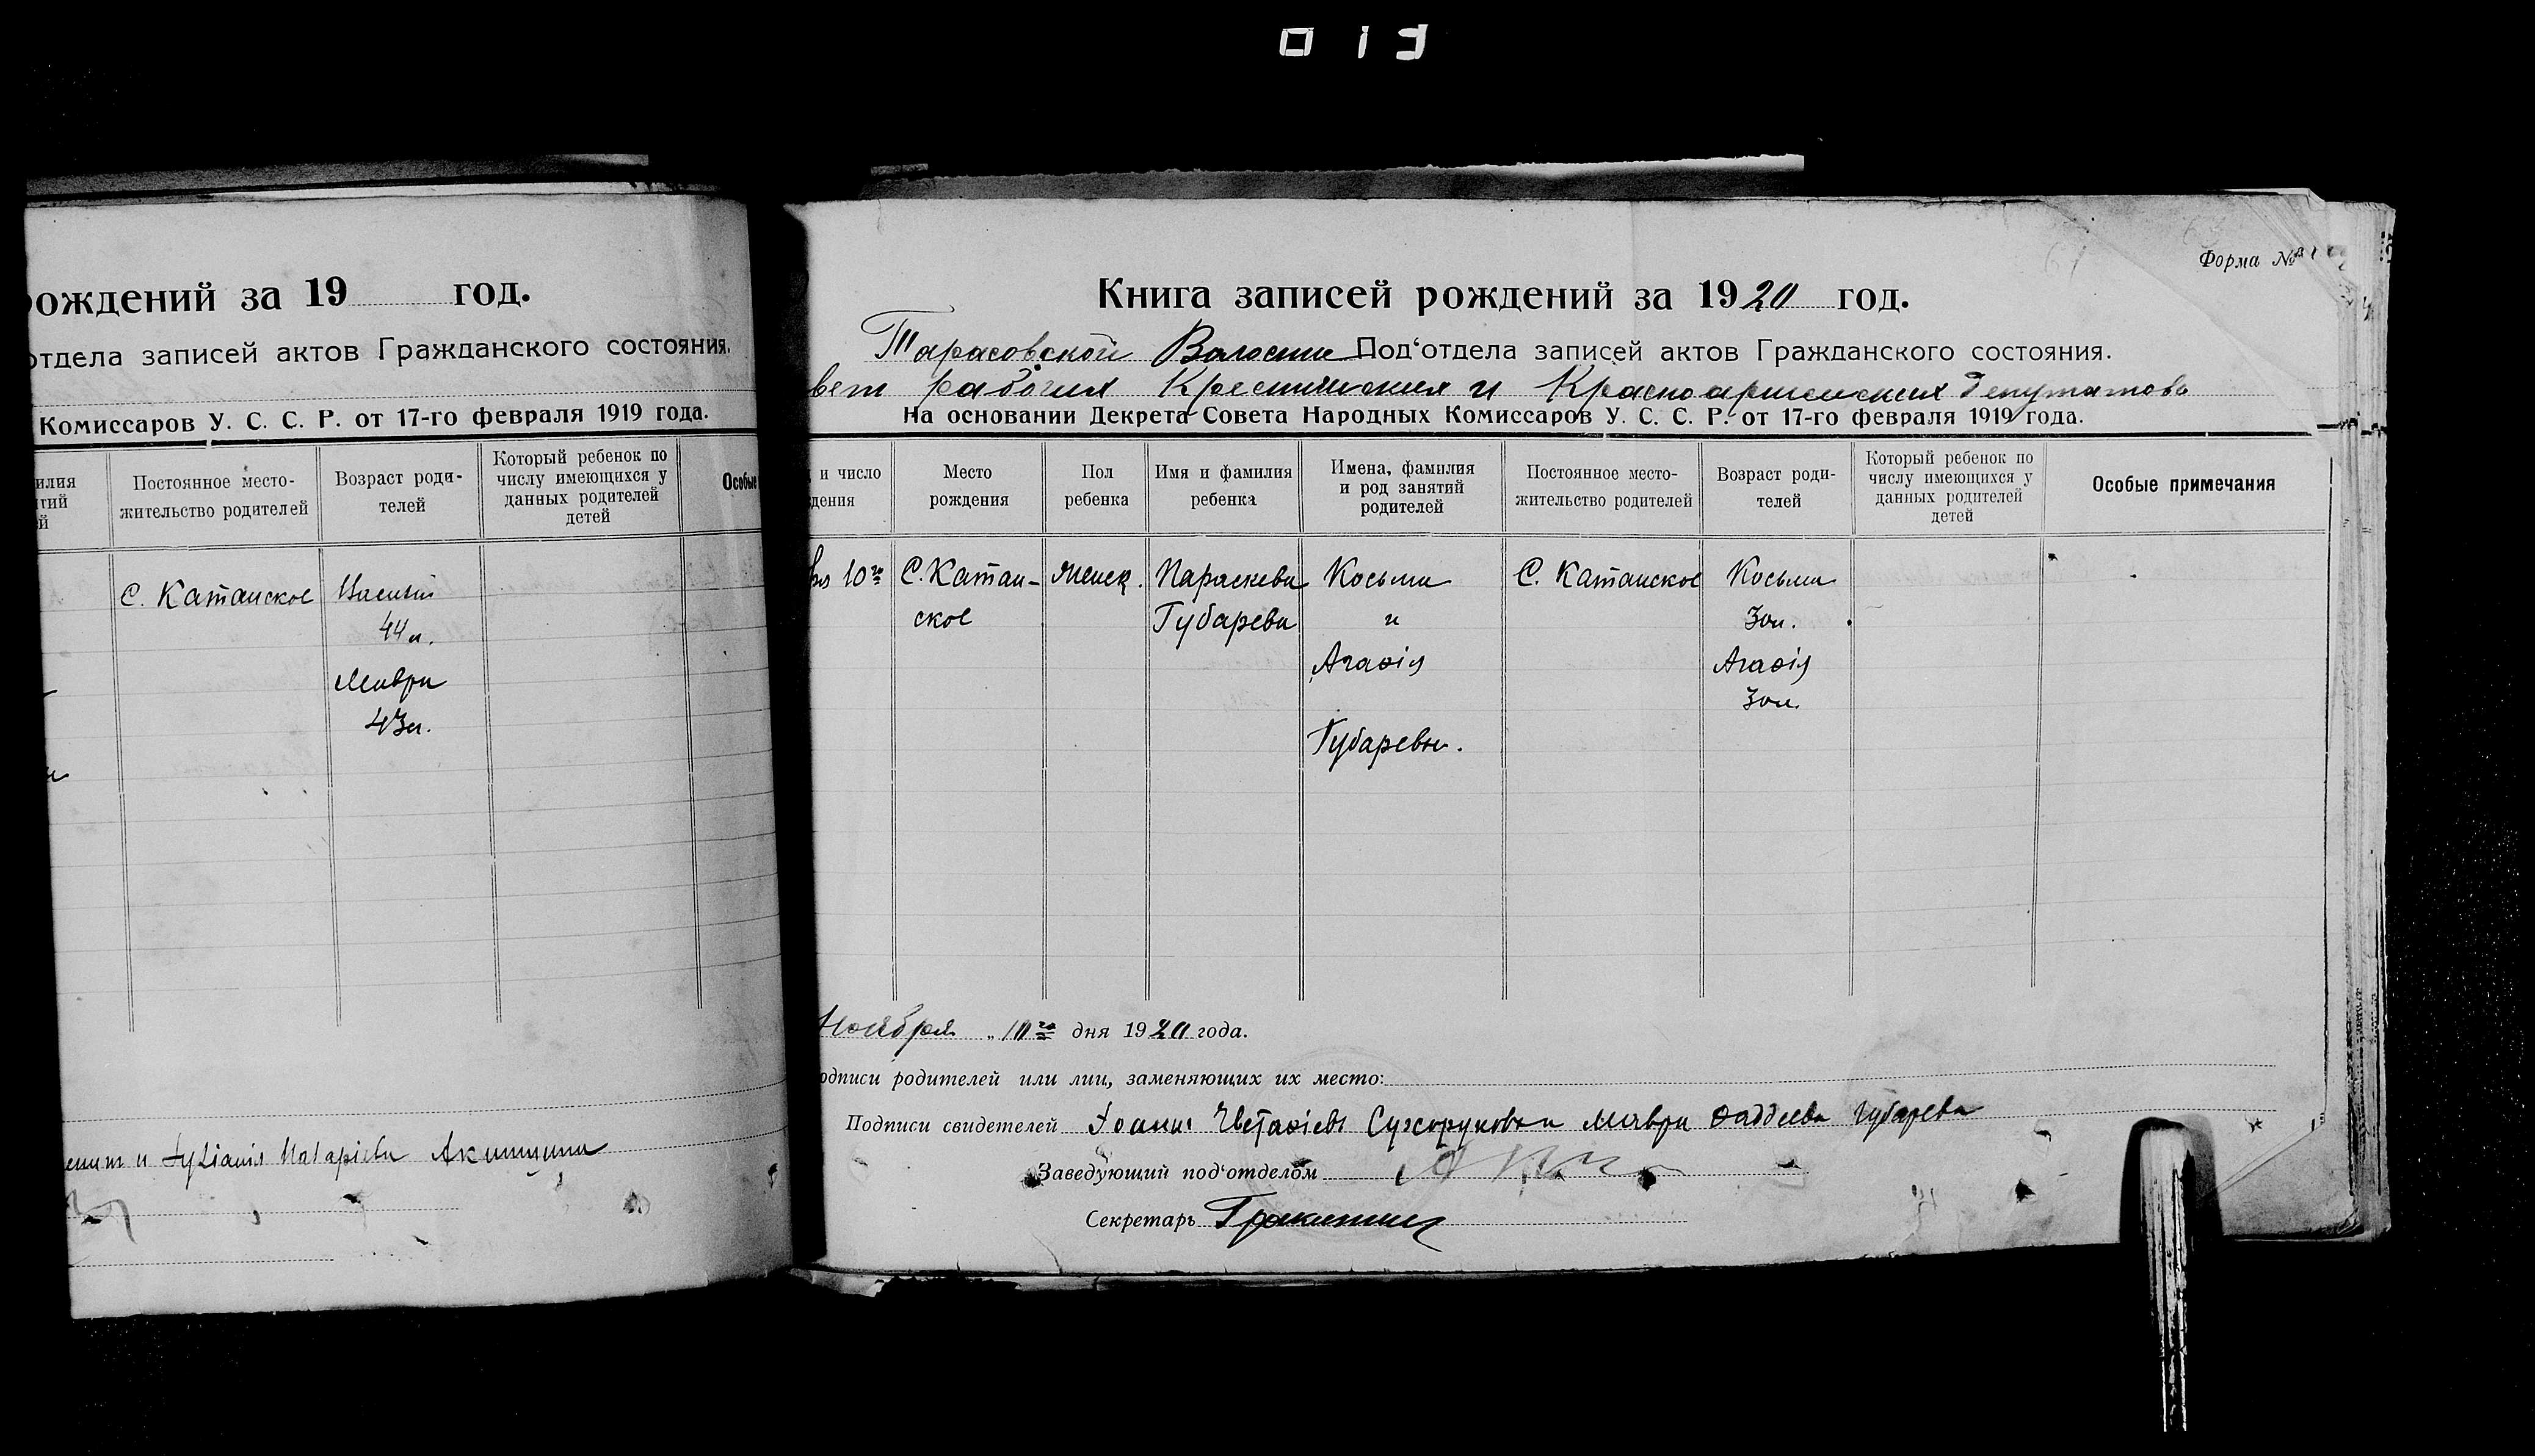 рождений за 19 год.
отдела записей актов Гражданского состояния.
Комиссаров У. С. С. Р. от 17-го февраля 1919 года.
илия
Постоянное место-
жительство родителей
Возраст роди-
телей
Который ребенок по
числу имеющихся у
данных родителей
детей
Особые
С. Катанское
44 л.
Мавра
43 л.
Форма №
Книга записей рождений за 1920 год.
Тарасовской Волости Под'отдела записей актов Гражданского состояния.
вет рабочих Крестьянских и Красноармейских депутатовъ
На основании Декрета Совета Народных Комиссаров У. С. С. Р. от 17-го февраля 1919 года.
и число
дения
Место
рождения
Пол
ребенка
Имя и фамилия
ребенка
Имена, фамилия
и род занятий
родителей
Постоянное место-
жительство родителей
Возраст роди-
телей
Который ребенок по
числу имеющихся у
данных родителей
детей
Особые примечания
10го
С. Катан-
ское
Женск.
Параскева
Губарева
Косьма
и
Агафія
Губаревы.
С. Катанское
Косьма
30 л.
Агафія
30 л.
Ноября „10го дня 1920 года.
одписи родителей или лиц, заменяющих их место:
Подписи свидетелей Сухорукова и Мавра Фаддеева Губарева
Заведующий под'отделом
Секретарь